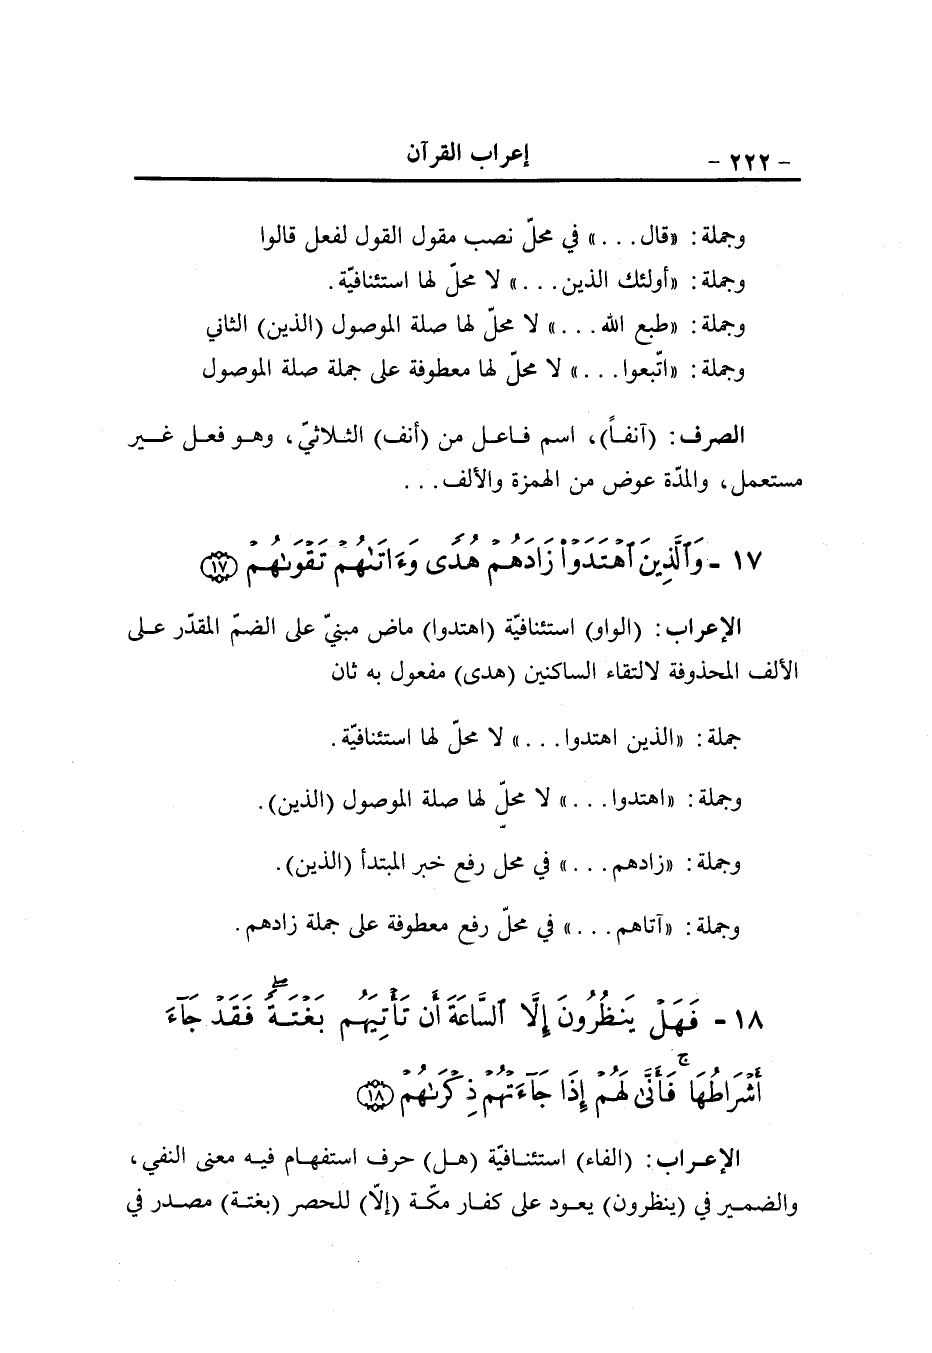 - ٢٢٢ - إعراب القرآن
وجملة: «قال. . .» في محلّ نصب مقول القول لفعل قالوا
وجملة: «أولئك الذين. . .» لا محلّ لها استئنافيّة.
وجملة: «طبع الله. . .» لا محلّ لها صلة الموصول (الذين) الثاني
وجملة: «اتّبعوا. . .» لا محلّ لها معطوفة على جملة صلة الموصول
الصرف: (آنفاً)، اسم فاعل من (أنف) الثلاثيّ، وهو فعل غير
مستعمل، والمدّة عوض من الهمزة والألف. . .
١٧ - وَٱلَّذِينَ ٱهْتَدَوْا۟ زَادَهُمْ هُدًى وَءَاتَىٰهُمْ تَقْوَىٰهُمْ ﴿١٧﴾
الإعراب: (الواو) استئنافيّة (اهتدوا) ماض مبنيّ على الضمّ المقدّر على
الألف المحذوفة لالتقاء الساكنين (هدى) مفعول به ثان
جملة: «الذين اهتدوا. . .» لا محلّ لها استئنافيّة.
وجملة: «اهتدوا. . .» لا محلّ لها صلة الموصول (الذين).
وجملة: «زادهم. . .» في محل رفع خبر المبتدأ (الذين).
وجملة: «آتاهم. . .» في محلّ رفع معطوفة على جملة زادهم.
١٨ - فَهَلْ يَنظُرُونَ إِلَّا ٱلسَّاعَةَ أَن تَأْتِيَهُم بَغْتَةً ۖ فَقَدْ جَآءَ
أَشْرَاطُهَا ۚ فَأَنَّىٰ لَهُمْ إِذَا جَآءَتْهُمْ ذِكْرَىٰهُمْ ﴿١٨﴾
الإعراب: (الفاء) استئنافيّة (هل) حرف استفهام فيه معنى النفي،
والضمير في (ينظرون) يعود على كفار مكّة (إلّا) للحصر (بغتة) مصدر في